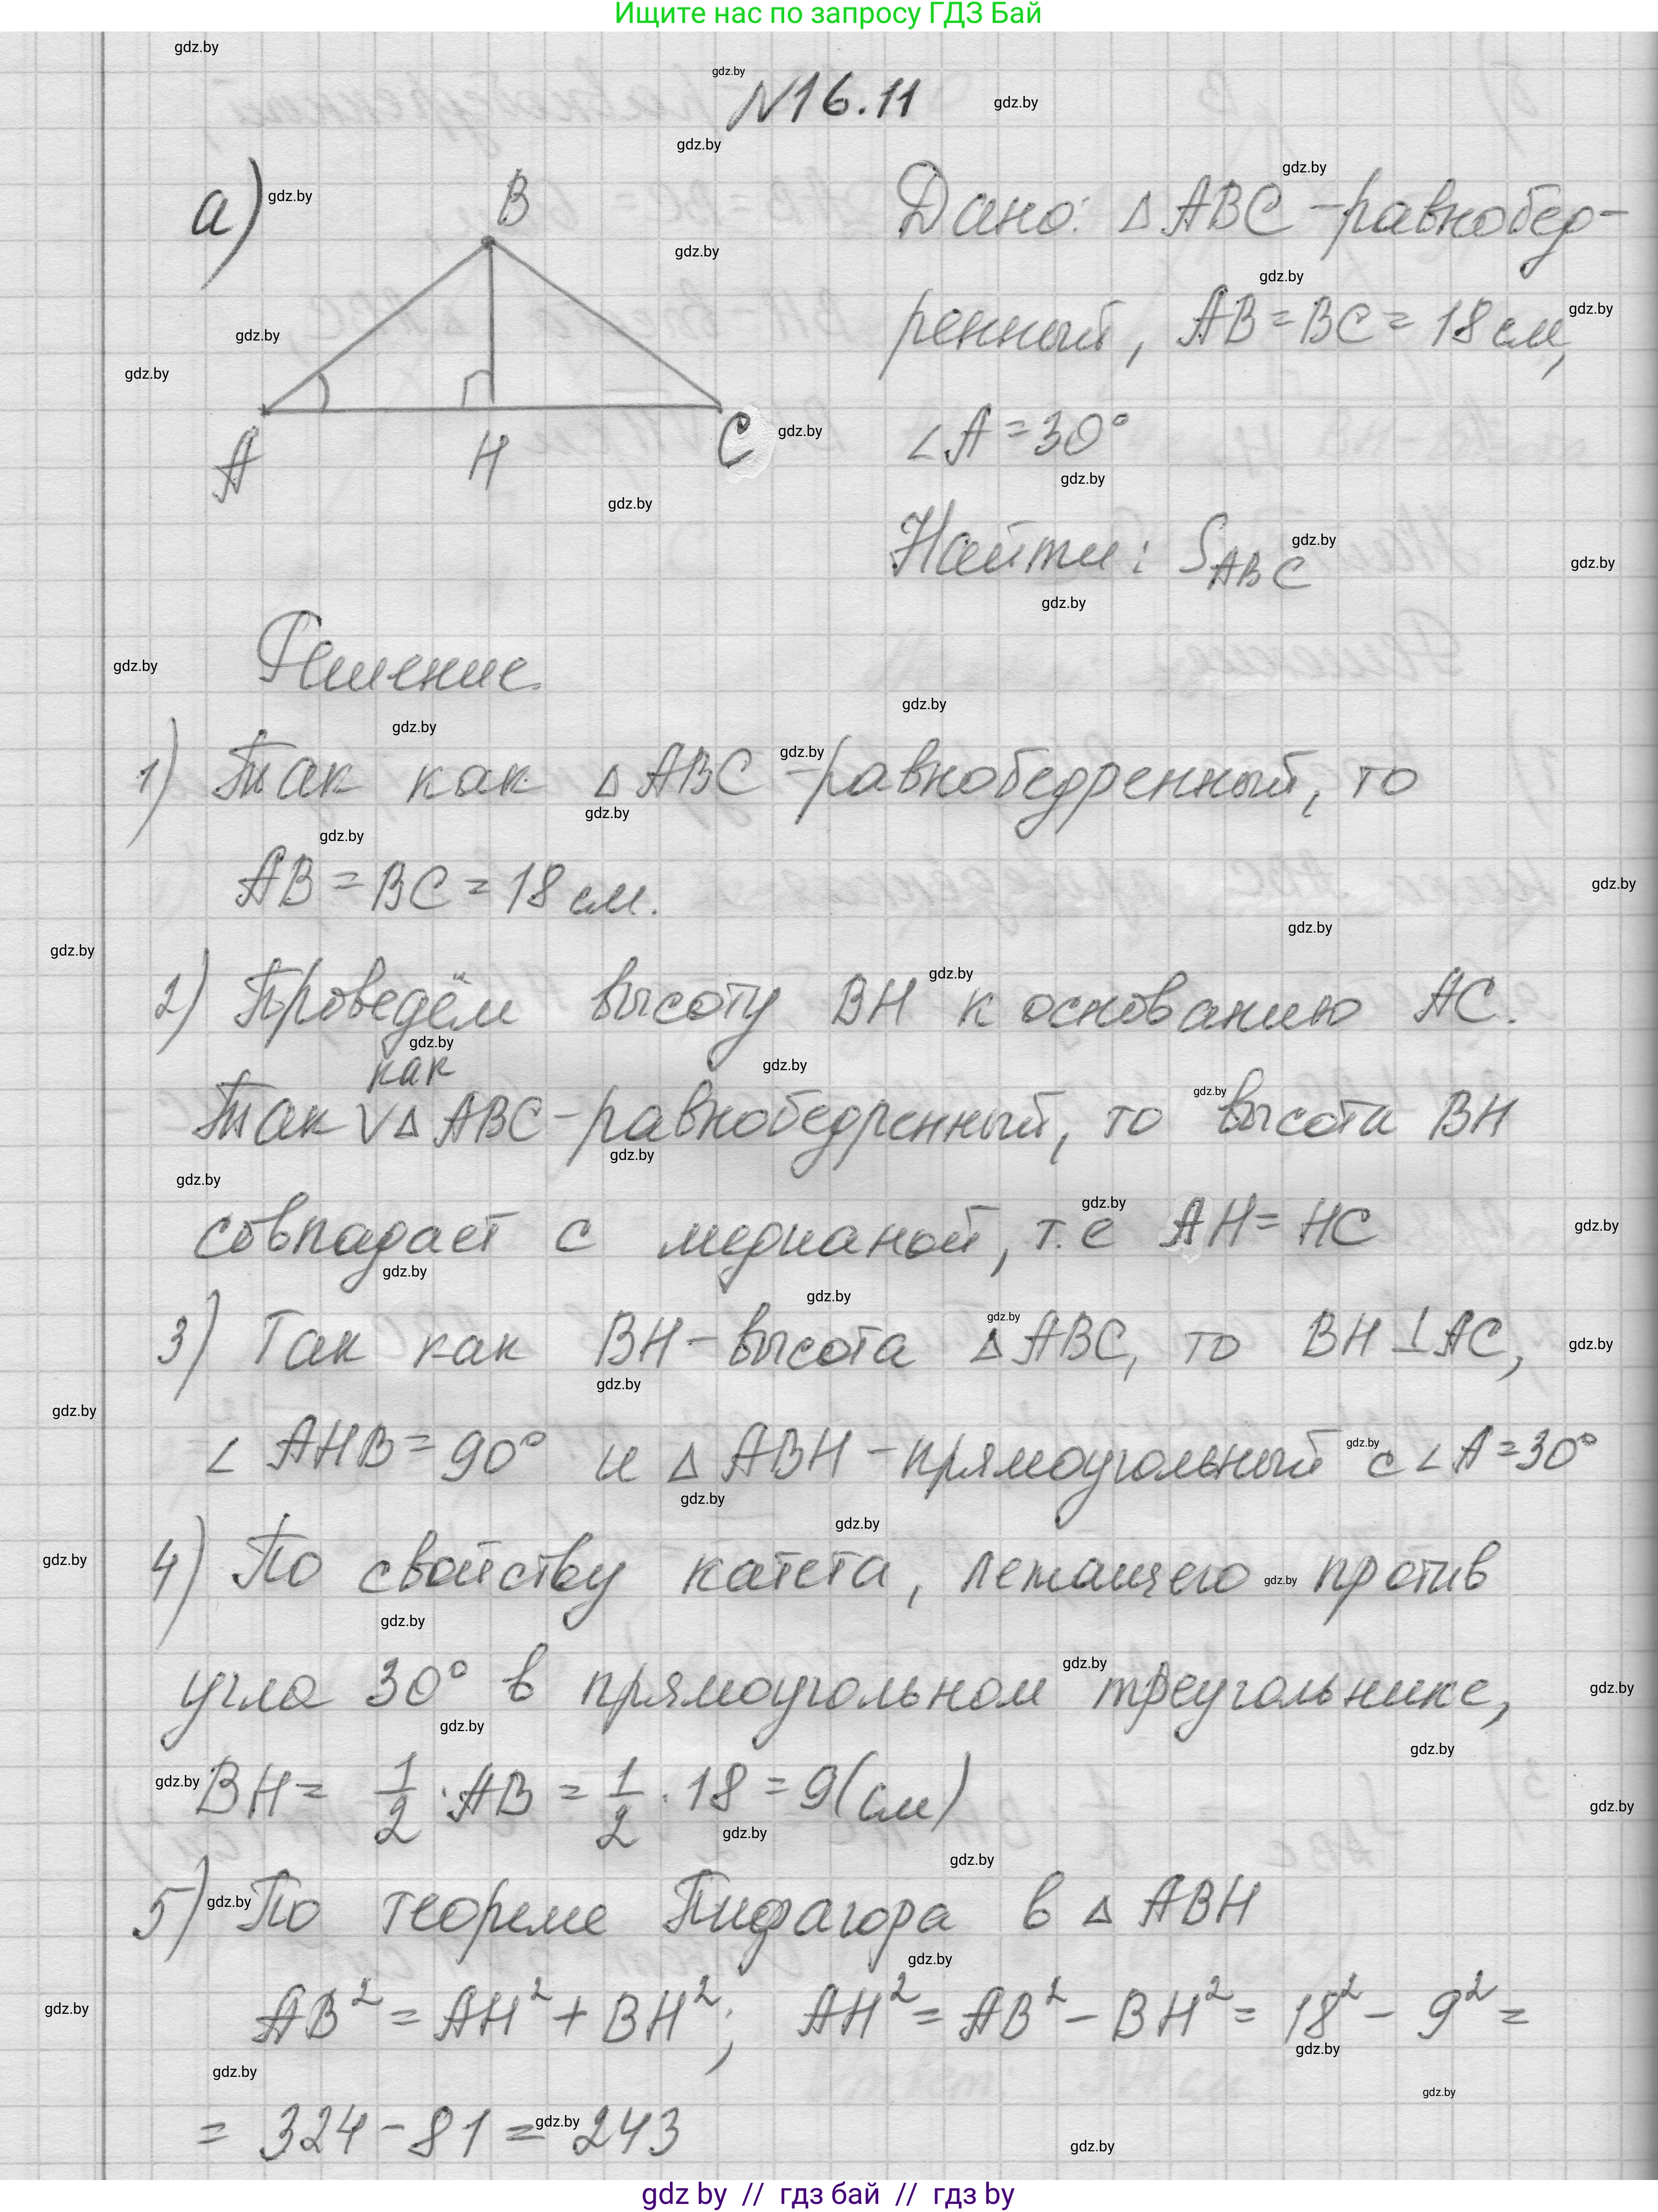 Ищите нас по запросу ГДЗ Бай
N16.11
а)
B
A
H
C
Дано: △ABC-равнобер-
ренный, AB=BC=18см,
∠A=30°
Найти: S_ABC
Решение.
1) Так как △ABC-равнобедренный, то
AB=BC=18см.
2) Проведём высоту BH к основанию AC.
как
Так V△ABC-равнобедренный, то высота BH
совпадает с медианой, т.е AH=HC
3) Так как BH-высота △ABC, то BH⊥AC,
∠AHB=90° и △ABH-прямоугольный с ∠A=30°
4) По свойству катета, лежащего против
угла 30° в прямоугольном треугольнике,
BH= 1/2·AB = 1/2·18=9(см)
5) По теореме Пифагора в △ABH
AB²=AH²+BH²; AH²=AB²-BH²=18²-9²=
= 324-81=243
gdz by // гдз бай // гдз by